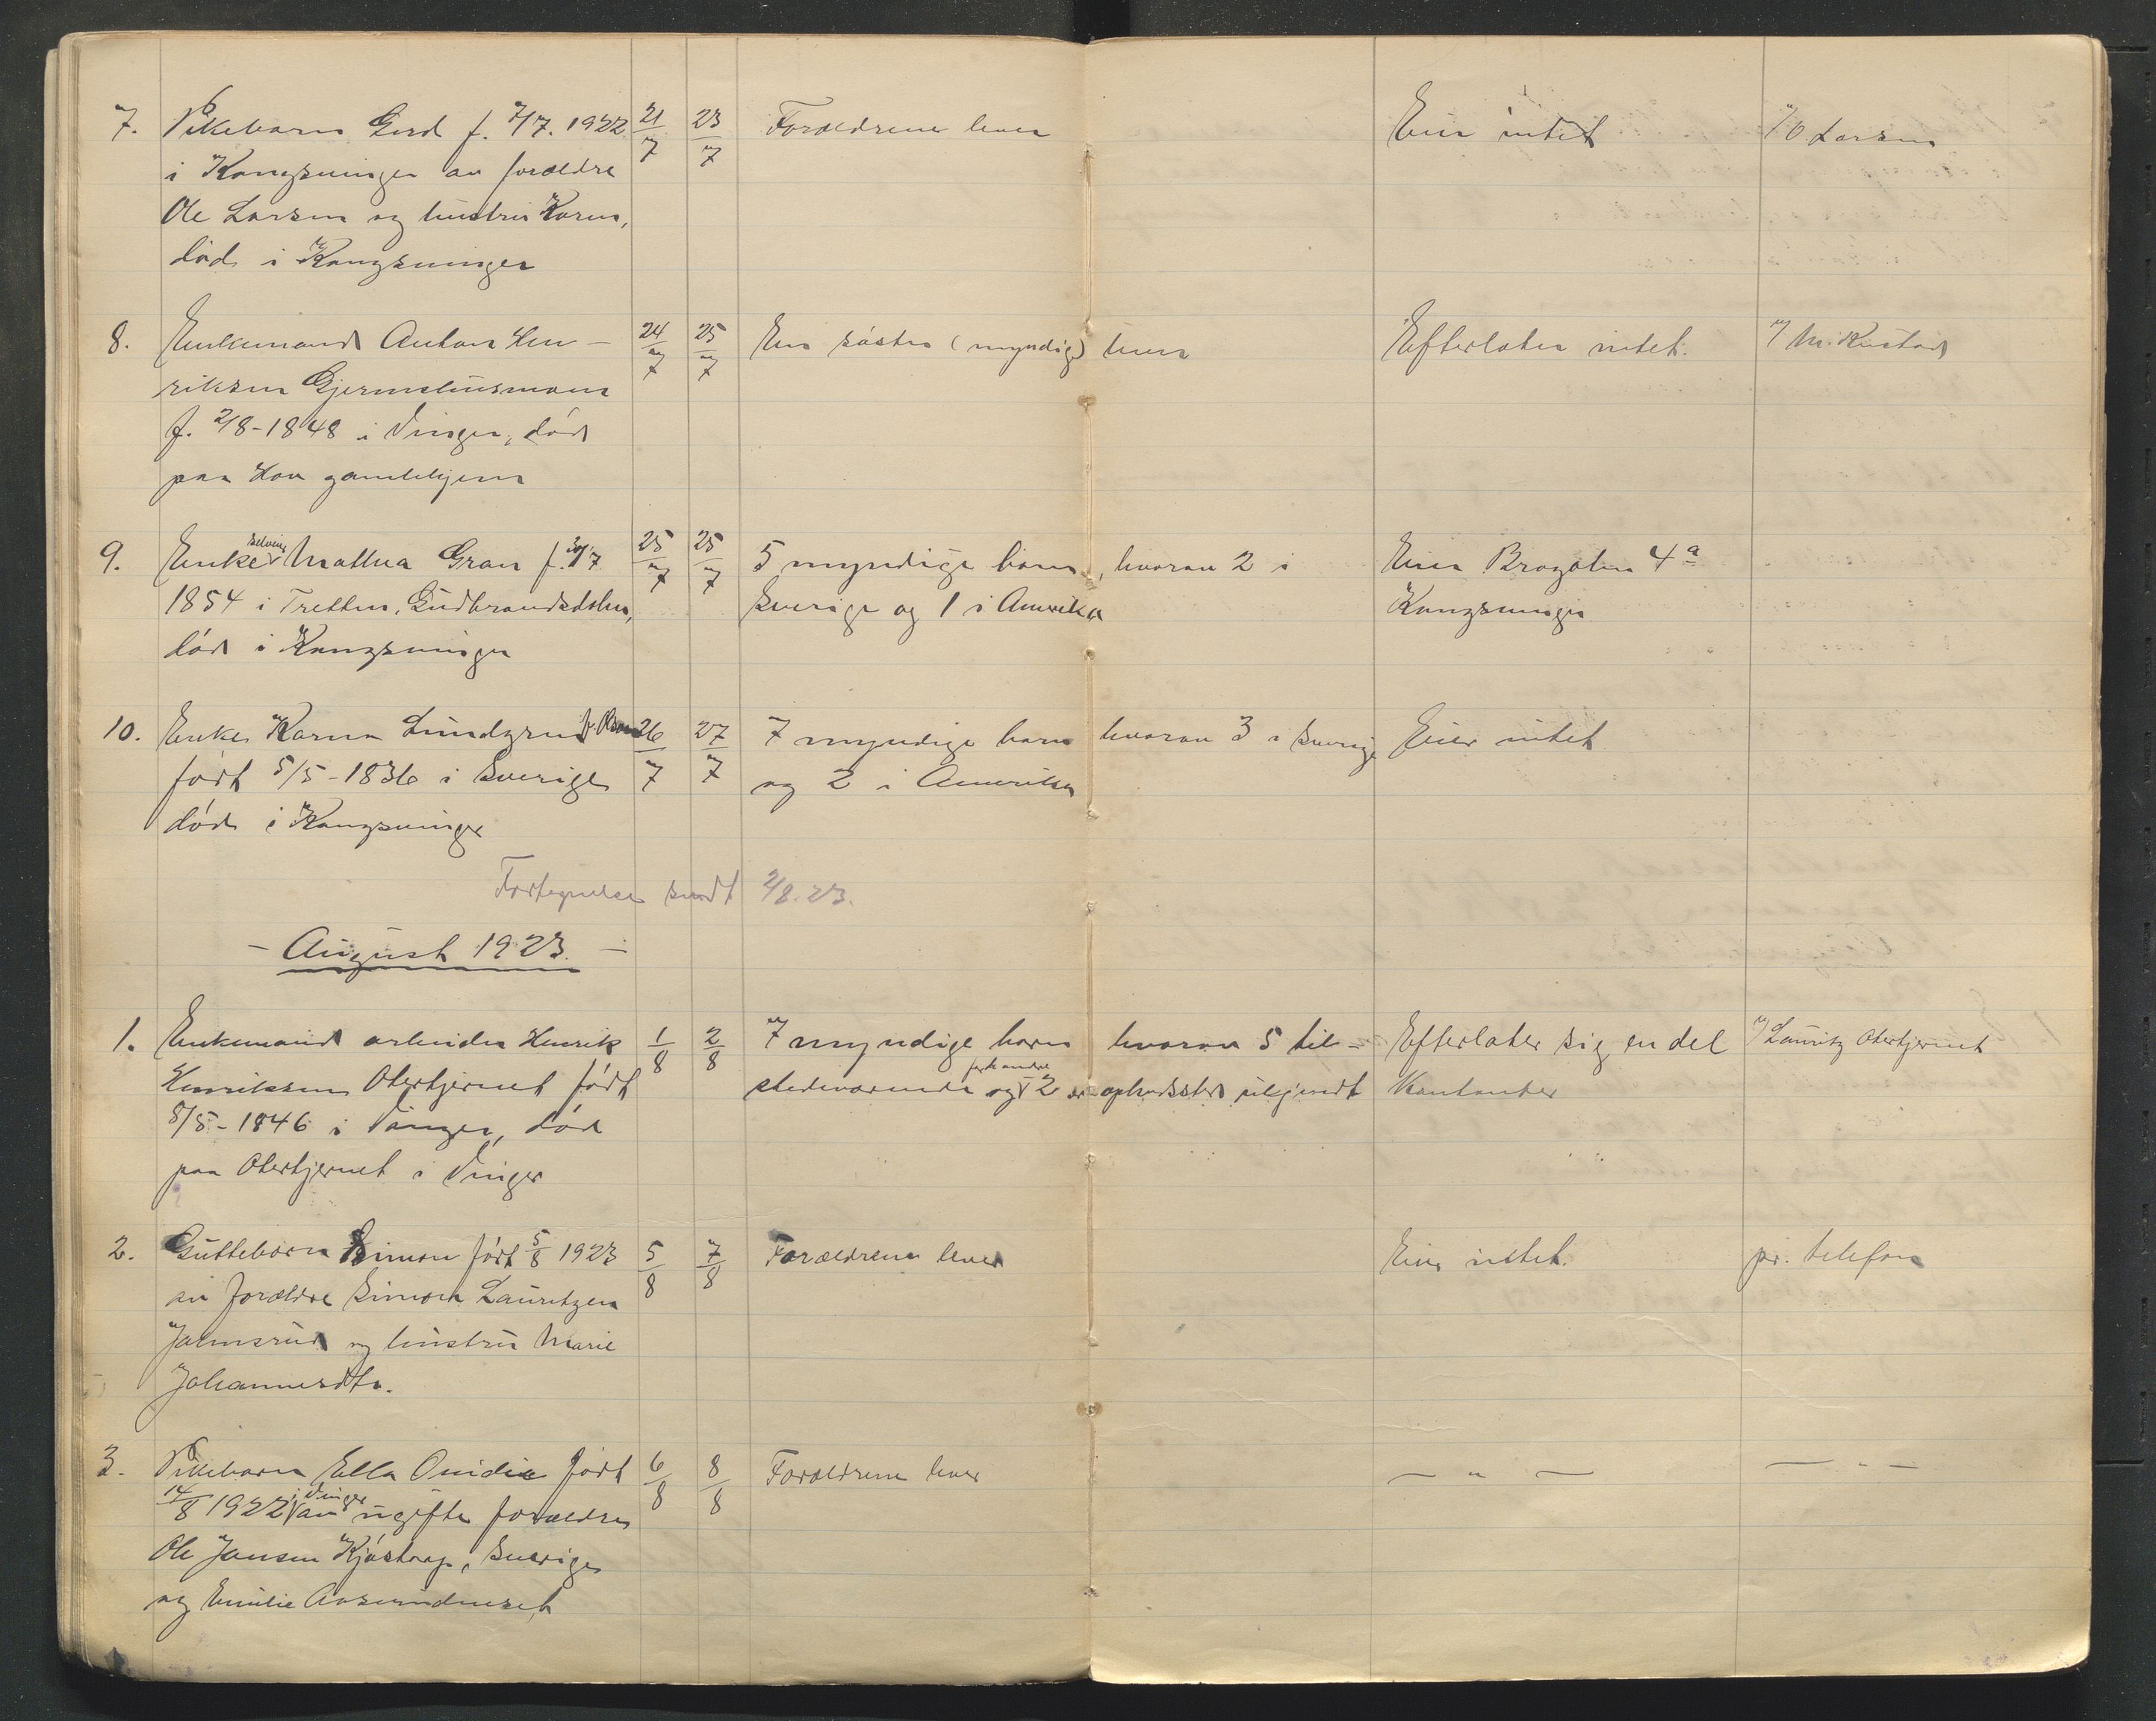 7. Pikebarn Gerd f. 7/7. 1922 21/7 23/7 Forældrene lever Eier intet O Larsen
i Kongsvinger av forældre
Ole Larsen og hustru Karen,
død i Kongsvinger
8. Enkemand Anton Hen- 24/7 25/7 En søster (myndig) lever Efterlater intet.
riksen Gjermshusmoen
f. 2/8-1848 i Vinger, død
paa Hov gamlehjem
9. Enke Mathea Gran f. 30/7 25/7 25/7 5 myndige barn, hvorav 2 i Eier Brogaten 4a
1854 i Tretten, Gudbrandsdalen, Sverige og 1 i Amerika Kongsvinger
død i Kongsvinger
10. Enke Karen Lundgren f. Olsen 26/7 27/7 7 myndige barn hvorav 3 i Sverige Eier intet
født 5/5-1836 i Sverige og 2 i Amerika
død i Kongsvinger
Fortegnelse sendt 2/8.23.
- August 1923. -
1. Enkemand arbeider Henrik 1/8 2/8 7 myndige barn hvorav 5 til- Efterlater sig en del Lauritz Otertjernet
Henriksen Otertjernet født stedeværende og 2 opholdssted ukjendt Kontanter
8/5-1846 i Vinger, død
paa Otertjernet i Vinger
2. Guttebarn Simon født 5/8 1923 5/8 7/8 Forældrene lever Eier intet. pr. telefon
av forældre Simon Lauritzen
Jalmsrud og hustru Marie
Johannesdtr.
3. Pikebarn Ella Ovidie født 6/8 8/8 Forældrene lever — " — — " —
14/8 1922 i Vinger av ugifte forældre
Ole Jansen Kjøstrap, Sverige
og Emilie Aasumdneset